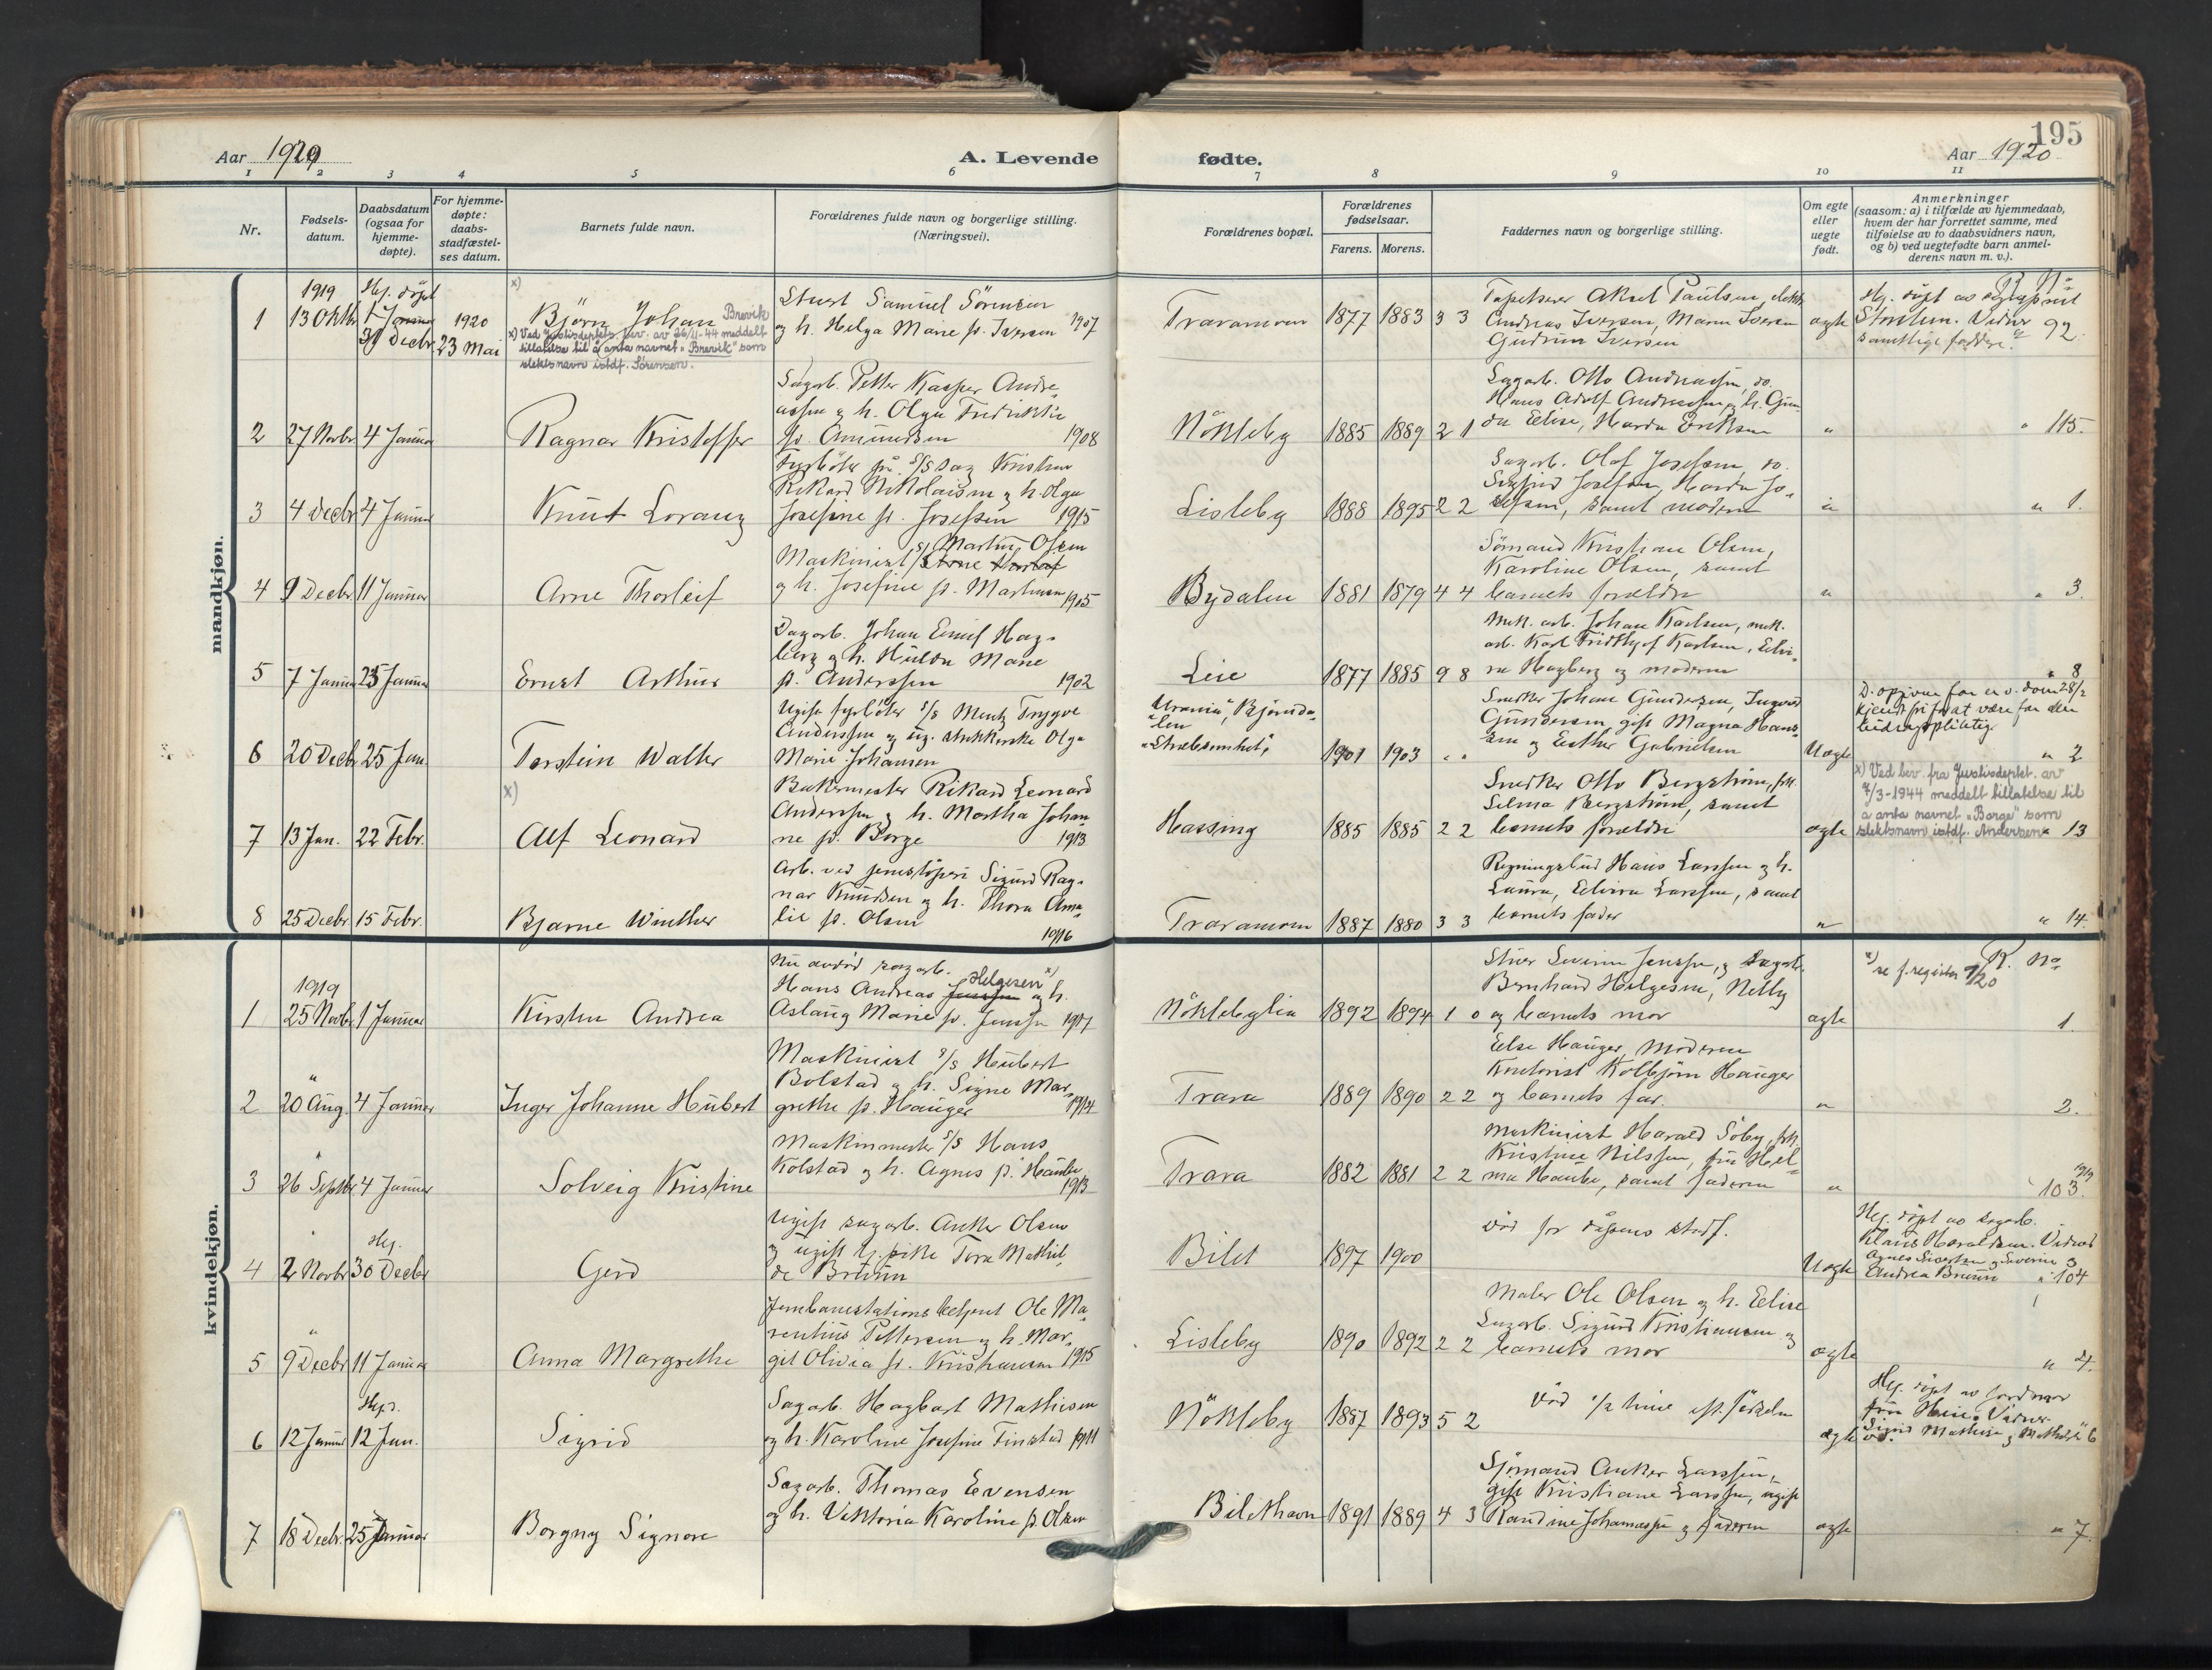 195
Aar 1920
A. Levende
fødte.
Aar 1920
1
2
3
4
5
6
7
8
9
10
11
Nr.
Fødsels-
datum.
Daabsdatum
(ogsaa for
hjemme-
døpte).
For hjemme-
døpte:
daabs-
stadfæstel-
ses datum.
Barnets fulde navn.
Forældrenes fulde navn og borgerlige stilling.
(Næringsvei).
Forældrenes bopæl.
Forældrenes
fødselsaar.
Farens.
Morens.
Faddernes navn og borgerlige stilling.
Om egte
eller
uegte
født.
Anmerkninger
(saasom: a) i tilfælde av hjemmedaab,
hvem der har forrettet samme, med
tilføielse av to daabsvidners navn,
og b) ved uegtefødte barn anmel-
derens navn m. v.).
mandkjøn.
1
1919
13 Oktbr
Hj. døpt
1 Januar
31 Decbr
1920
23 Mai
x)
Bjørn Johan Brevik
x) Ved Justisdeptets bev. av 26/11-44 meddelt
tillatelse til å anta navnet "Brevik" som
slektsnavn istdf. Sørensen.
Samuel Sørensen
og h. Helga Marie f. Iversen 1907
Traramoen
1877
1883
3 3
Tapetserer Aksel Paulsen,
Andreas Iversen, Marie Iversen
Gudrun Iversen
ægte
Hj. døpt av
Vidner
samtlige faddere.
R. No
92
2
27 Novbr
4 Januar
Ragnar Kristoffer
Sagarb. Petter Kasper Andre-
assen og h. Olga Fredrikke
f. Amundsen 1908
Nökleby
1885
1889
2 1
Sagarb. Otto Andreassen, do.
Hans Adolf Andreassen og h. Gun-
da Elise, Harda Eriksen
"
" 115.
3
4 Decbr
4 Januar
Knut Lorang
Fyrböter på S/S Dag Kristian
Rikard Nikolaisen og h. Olga
Josefine f. Josefsen 1915
Lisleby
1888
1895
2 2
Sagarb. Olaf Josefsen, do.
Sigfrid Josefsen, Harda Jo-
sefsen, samt moderen
"
" 1.
4
9 Decbr
11 Januar
Arne Thorleif
Maskinist S/S Martin Olsen
Arne Thorleif
og h. Josefine f. Martinsen 1905
Bydalen
1881
1879
4 4
Sømand Kristian Olsen,
Karoline Olsen, samt
barnets forældre
"
" 3.
5
7 Januar
25 Januar
Ernst Arthur
Dagarb. Johan Emil Hag-
berg og h. Hulda Marie
f. Anderssen 1902
Leie
1877
1885
9 8
Mek. arb. Johan Karlsen, mek.
arb. Karl Fridthjof Karlsen, Elvi-
ra Hagberg og moderen
" 8
6
20 Decbr
25 Jan.
Torstein Walter
Ugift fyrböter S/S Mentz Trygve
Anderssen og ug. Olga
Marie Johansen
"Urania", Bjørnda-
len
"Stræbsomhet",
1901
1903
" "
Snekker Johan Gundersen, Ingvald
Gundersen, gift Magna Hans-
sen og Esther Gabrielsen
Uægte
D. opgivne far er v. dom 28/2
kjendt fri for at være far men
bidragspliktig.
" 2
7
13 Jan.
22 Febr.
x)
Alf Leonard
Bakermester Rikard Leonard
Anderssen og h. Martha Johan-
ne f. Borge 1913
Hassing
1885
1885
2 2
Snekker Otto Bergstrøm, frk.
Selma Bergstrøm, samt
barnets forældre
ægte
x) Ved bev. fra Justisdeptet. av
7/3-1944 meddelt tillatelse til
å anta navnet "Borge" som
slektsnavn istdf. Andersen
" 13
8
25 Decbr
15 Febr.
Bjarne Winther
Arb. ved jernstøperi Sigurd Rag-
nar Knudsen og h. Thora Ama-
lie f. Olsen
1916
Traramoen
1887
1880
3 3
Regningsbud Hans Larssen og h.
Laura, Elvira Larssen, samt
barnets fader
"
" 14.
kvindekjøn.
1
1919
25 Novb.
1 Januar
Kirsten Andrea
Nu avdød sagarb.
Hans Andreas Jenssen Helgesen x) og h.
Aslaug Marie f. Jenssen 1917
Nöklebylia
1892
1894
1 0
Severin Jenssen, og sagarb.
Bernhard Helgesen, Nelly
og barnets mor
ægte
x) se f. register 9/20
R. No
1.
2
"
20 Aug.
4 Januar
Inger Johanne Hübert
Maskinist S/S Hübert
Bolstad og h. Signe Mar-
grethe f. Hauger 1914
Trara
1889
1890
2 2
Else Hauger, moderen
Kontorist Kolbjørn Hauger
og barnets far.
"
2.
3
"
26 Septbr
4 Januar
Solveig Kristine
Maskinmester S/S Hans
Kolstad og h. Agnes f. Haube
1913
Trara
1882
1881
2 2
Maskinist Harald Söby, frk.
Kristine Nilssen, fru Hel-
ma Haube, samt faderen
"
1919
103.
4
"
2 Novbr
Hj.
30 Decbr
Gerd
Ugift sagarb. Anker Olsen
og ugift tj. pike Tora Mathil-
de Bruun
Bilet
1897
1900
Død før dåpens stadf.
Uægte
Hj. døpt av sagarb.
Klaus Haraldsen. Vidner
Andrea Bruun
" 104
5
"
9 Decbr
11 Januar
Anna Margrethe
Jernbanestationsbetjent Ole Ma-
rentius Pettersen og h. Mar-
git Olivia f. Kristiansen 1915
Lisleby
1890
1892
2 2
Maler Ole Olsen og h. Elise
Sagarb. Sigurd Kristiansen og
barnets mor
ægte
" 4.
6
12 Januar
Hj. d.
12 Jan.
Sigrid
Sagarb. Hagbart Mathisen
og h. Karoline Josefine Finstad 1911
Nökleby
1887
1893
5 2
Død 1/2 time eft. fødselen
ægte
Hj. døpt av jordmor
Vidner
Sigrid Mathisen og
6
7
18 Decbr.
25 Januar
Borgny Signore
Sagarb. Thomas Evensen
og h. Viktoria Karoline f. Olsen
Bilethavn
1891
1889
4 3
Sjømand Anker Larssen,
gift Kristiane Larssen, ugift
Randine Johannessen og faderen
ægte
" 7.